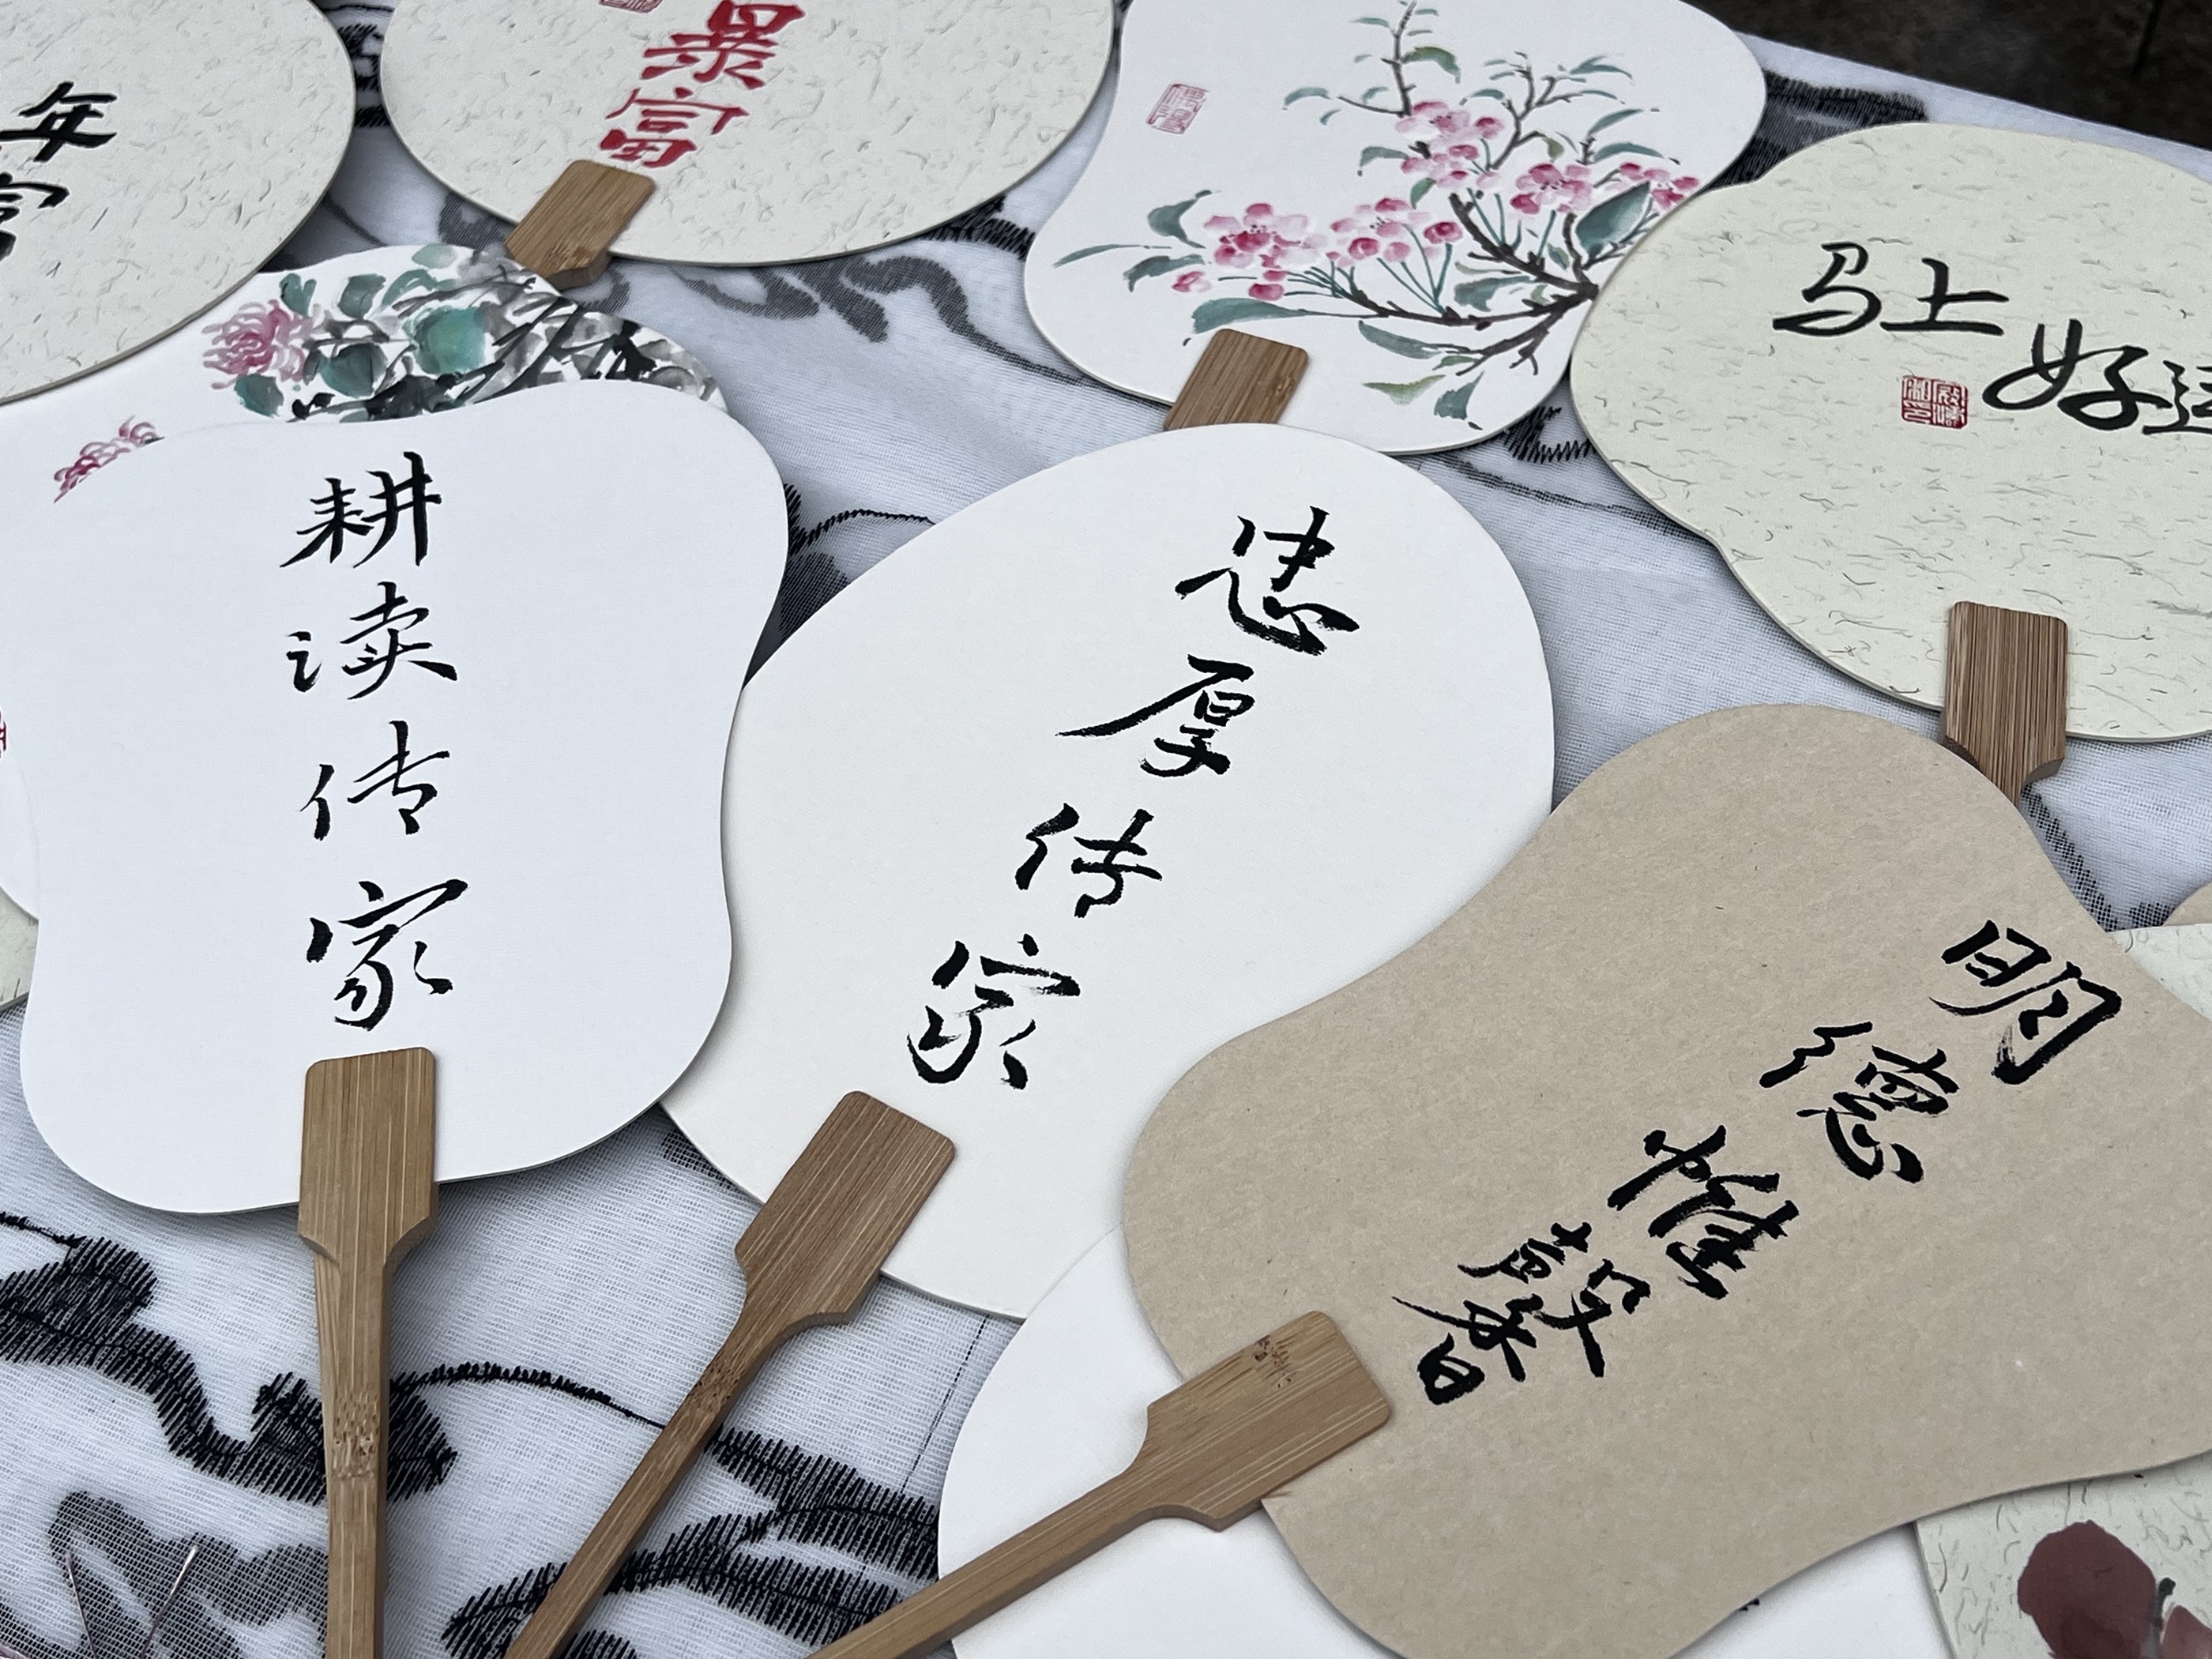 年
富
暴富
马上
好运
耕读传家
忠厚传家
明德惟馨